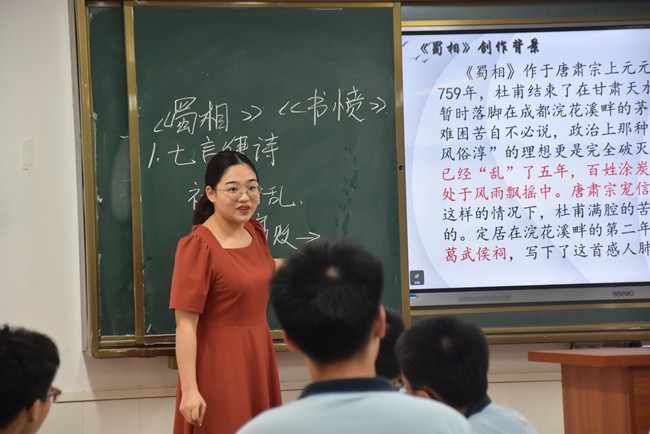 《蜀相》《书愤》
1.七言律诗
乱.
败→
《蜀相》创作背景
《蜀相》作于唐肃宗上元元
759年，杜甫结束了在甘肃天水
暂时落脚在成都浣花溪畔的茅
难困苦自不必说，政治上那种
风俗淳”的理想更是完全破灭
已经“乱”了五年，百姓涂炭
处于风雨飘摇中。唐肃宗宠信
这样的情况下，杜甫满腔的苦
的。定居在浣花溪畔的第二年
葛武侯祠，写下了这首感人肺
seewo